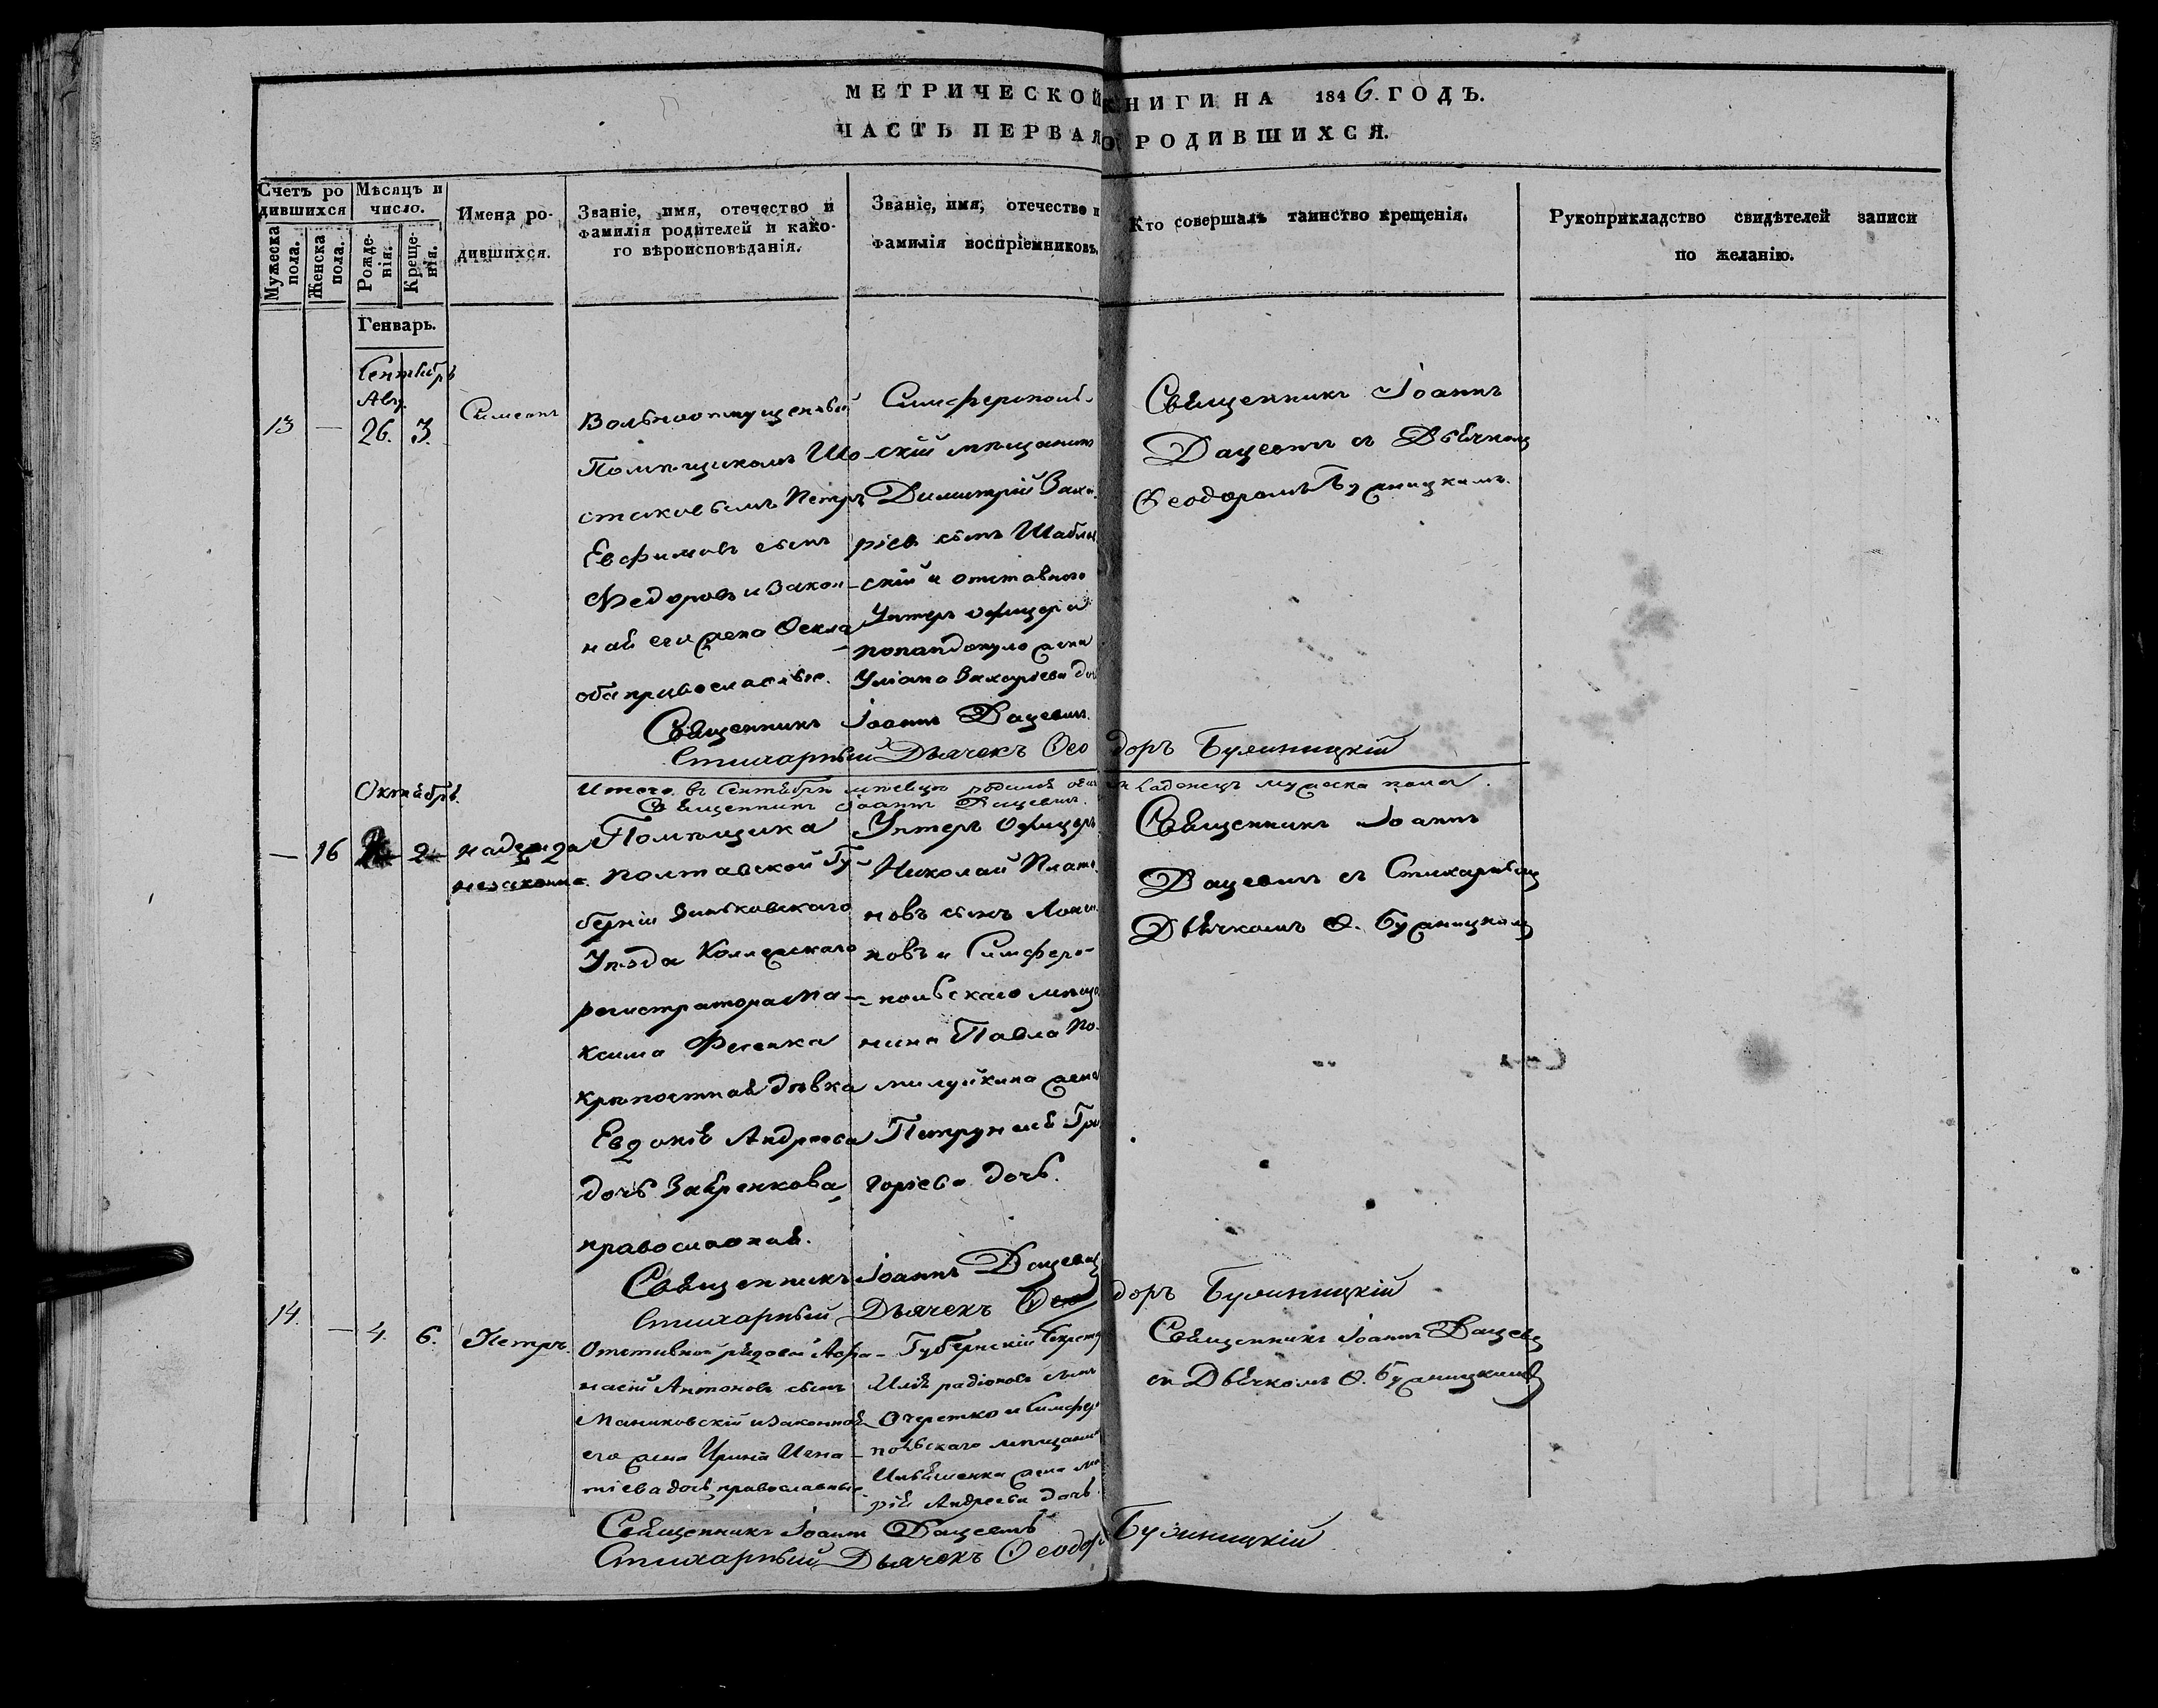 МЕТРИЧЕСКОЙ КНИГИ НА 1846. ГОДЪ.
ЧАСТЬ ПЕРВАЯ О РОДИВШИХСЯ.
Счетъ ро
дившихся
Мужеска пола.
Женска пола.
Мѣсяцъ и
число.
Рожде-
нія.
Креще-
нія.
Имена ро-
дившихся.
Званіе, имя, отечество и
фамилія родителей и како-
го вѣроисповѣданія.
Званіе, имя, отечество и
фамилія воспріемниковъ.
Кто совершалъ таинство крещенія.
Рукоприкладство свидѣтелей записи
по желанію.
Генварь.
Сентябрь
Авг.
13 — 26. 3.
Симеонъ
Вольноотпущенный
Помѣщикомъ Шо-
стаковымъ Петръ
Евфимовъ сынъ
Федоровъ и закон-
ная его жена Ѳекла
оба православные.
Симферополь-
скій мѣщанинъ
Димитрій Заха-
ріевъ сынъ
скій и отставного
Унтеръ офицера
жена
Уліана Захаріева до
Священникъ Іоаннъ
Дацевичъ съ Дьячкомъ
Ѳеодоромъ Бужницкимъ.
Священникъ Іоаннъ Дацевичъ.
Стихарный Дьячекъ Ѳеодоръ Бужиницкій
Октябрь.
Итого въ Сентябрѣ мѣсяцѣ младенецъ мужеска пола.
Священникъ Іоаннъ Дацевичъ.
— 16 2
Надежда
незаконно.
Помѣщика
Полтавской Гу-
берніи Зиньковскаго
Уѣзда Коллежскаго
регистратора Ма-
ксима Фесенка
крѣпостная дѣвка
Евдокія Андреева
дочь
православная.
Унтеръ Офицеръ
Николай Плато-
новъ сынъ
новъ и Симферо-
польскаго мѣща
нина Павла По-
милуйкина жена
Петрунелія Гри
горіева дочь.
Священникъ Іоаннъ
Дацевичъ съ Стихарнымъ
Дьячкомъ Ѳ. Бужницкимъ
Священникъ Іоаннъ Дацевичъ
Стихарный Дьячекъ Ѳеодоръ Бужиницкій
14. — 4. 6. Петръ.
Отставной рядовой Афа-
насій Антоновъ сынъ
Маниковскій и законная
его жена Ирина Игна-
тіева дочь, православные
Губернскій Секрета
Илія радіоновъ сынъ
Очеретко и Симферо
польскаго мѣщанин
Ильяшенка жена Ма
рія Андреева дочь
Священникъ Іоаннъ Дацеви
съ Дьячкомъ Ѳ. Бужницкимъ
Священникъ Іоаннъ Дацевичъ
Стихарный Дьячекъ Ѳеодоръ Бужиницкій